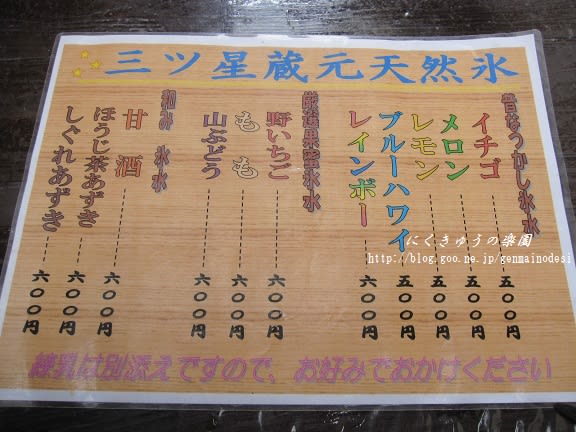 三ツ星蔵元天然氷
昔なつかし氷水
イチゴ 五〇〇円
メロン 五〇〇円
レモン 五〇〇円
ブルーハワイ 五〇〇円
レインボー 六〇〇円
厳選果蜜氷水
野いちご 六〇〇円
もも 六〇〇円
山ぶどう 六〇〇円
和み氷水
甘酒 六〇〇円
ほうじ茶あずき 六〇〇円
しぐれあずき 六〇〇円
練乳は別添えですので、お好みでおかけください
にくきゅうの楽園
http://blog.goo.ne.jp/genmainodesi